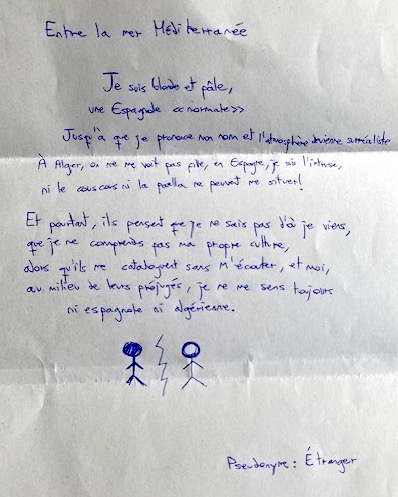 Entre la mer Méditerranée
Je suis blonde et pâle,
une Espagnole <<normale>>
Jusqu'à que je prononce mon nom et l'atmosphère devienne surréaliste
À Alger, on ne me voit pas fille, en Espagne, je suis l'intruse,
ni le couscous ni la paella ne peuvent me situer!
Et pourtant, ils pensent que je ne sais pas d'où je viens,
que je ne comprends pas ma propre culture,
alors qu'ils me cataloguent sans m'écouter, et moi,
au milieu de leurs préjugés, je ne me sens toujours
ni espagnole ni algérienne.
Pseudonyme: Étranger